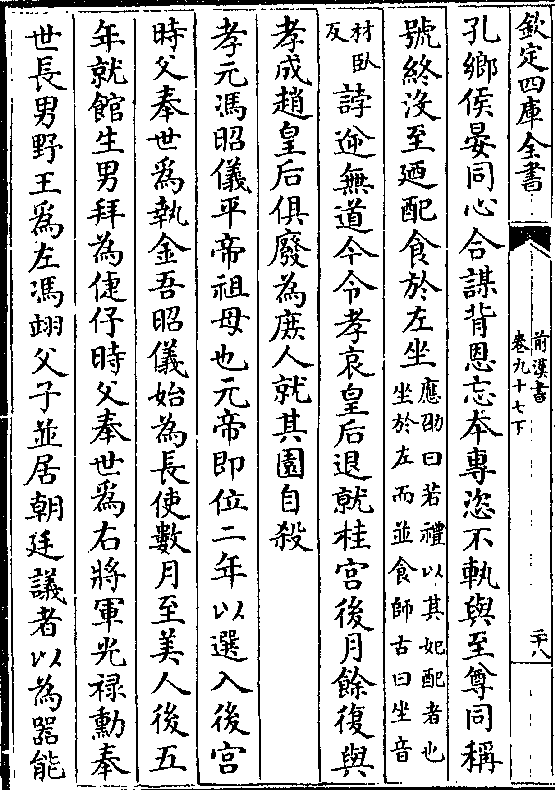 欽定四庫全書
前漢書
卷九十七下
二十八
孔鄉侯晏同心合謀背恩忘本專恣不軌與至尊同稱
號終沒至廼配食於左坐
應劭曰若禮以其妃配者也
坐於左而並食師古曰坐音
材臥
反
誖逆無道今令孝哀皇后退就桂宮後月餘復與
孝成趙皇后俱廢為庶人就其園自殺
孝元馮昭儀平帝祖母也元帝即位二年以選入後宮
時父奉世為執金吾昭儀始為長使數月至美人後五
年就館生男拜為倢伃時父奉世為右將軍光禄勳奉
世長男野王為左馮翊父子並居朝廷議者以為器能